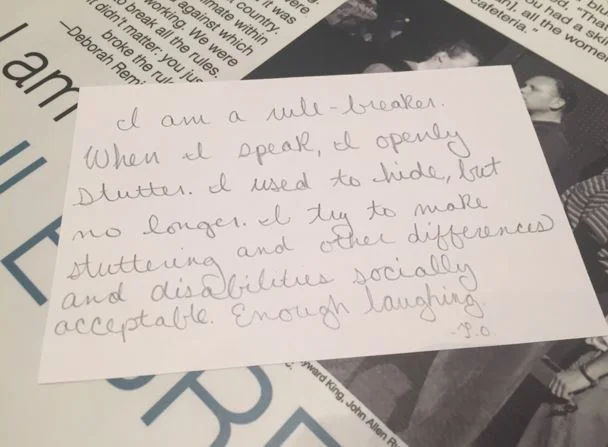 it was
country.
within
against which
working. We were
to break all the rules.
didn't matter: you
broke the
—Deborah
had a
all the
cafeteria."
I am
I am a rule-breaker.
When I speak, I openly
stutter. I used to hide, but
no longer. I try to make
stuttering and other differences
and disabilities socially
acceptable. Enough laughing.
-P.O.
King, John Allen